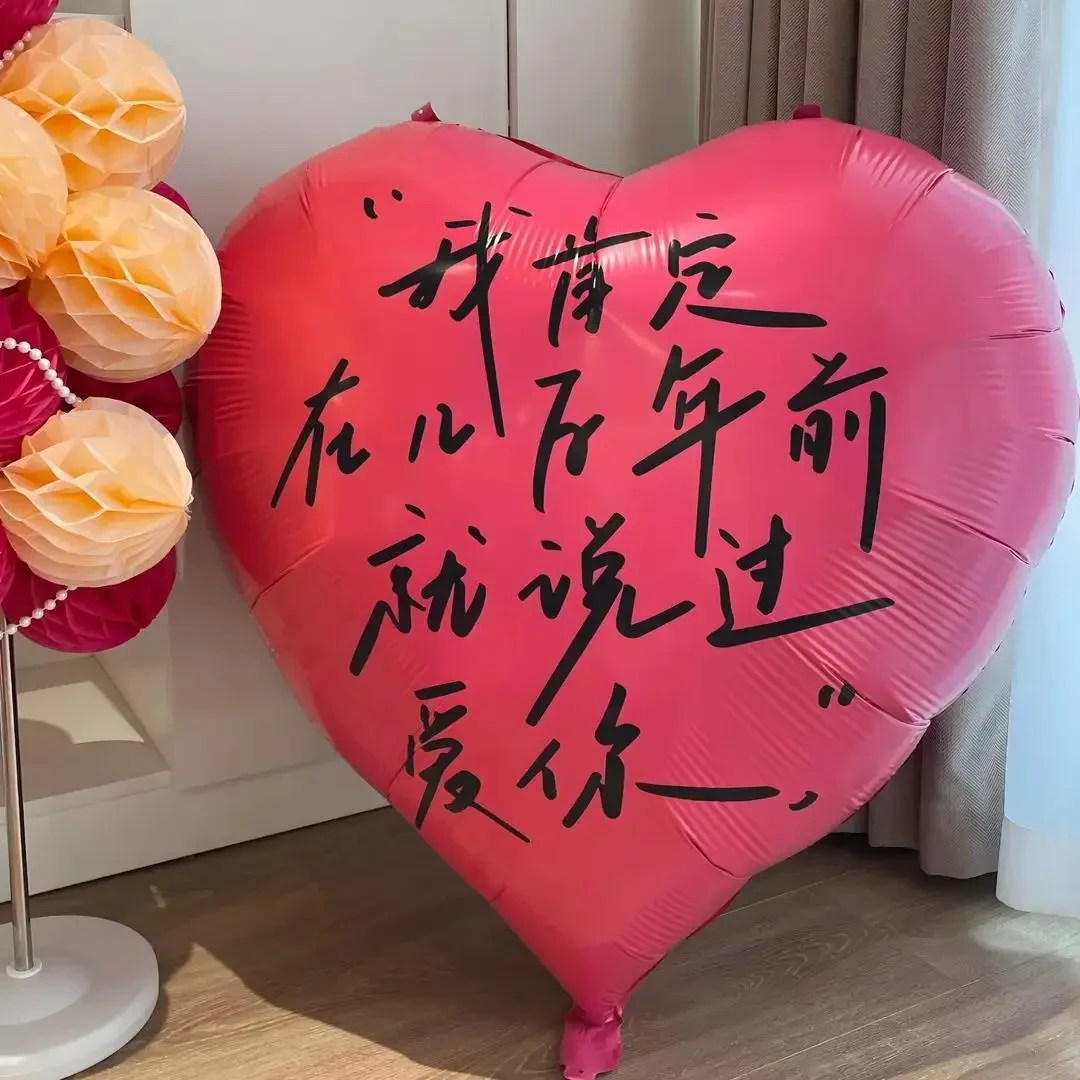 "我肯定
在几百年前
就说过
爱你",